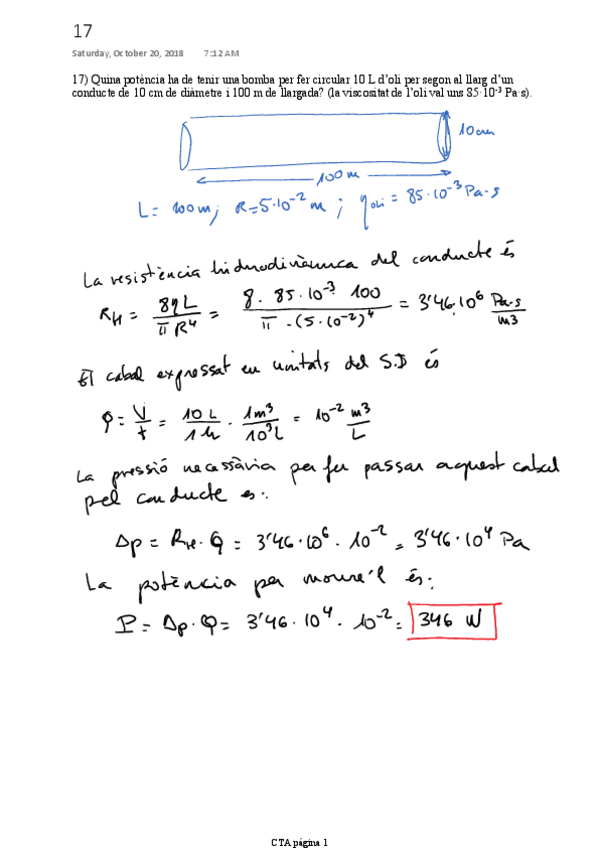 17
Saturday, October 20, 2018 7:12 AM
17) Quina potència ha de tenir una bomba per fer circular 10 L d'oli per segon al llarg d'un
conducte de 10 cm de diàmetre i 100 m de llargada? (la viscositat de l'oli val uns 85·10⁻³ Pa·s).
10cm
100m
L = 100m; R=5·10⁻² m ; η oli = 85·10⁻³ Pa·s
La resistència hidrodinàmica del conducte és
R_H = 8ηL / πR⁴ = 8 · 85·10⁻³ 100 / π · (5·10⁻²)⁴ = 3'46·10⁶ Pa·s / m3
El cabal expressat en unitats del S.I és
Q = V / t = 10 L / 1 h · 1m³ / 10³L = 10⁻² m³ / L
La pressió necessària per fer passar aquest cabal
pel conducte es:
Δp = R_H · Q = 3'46·10⁶ · 10⁻² = 3'46·10⁴ Pa
La potència per moure'l és:
P = Δp·Q = 3'46·10⁴ · 10⁻² = 346 W
CTA página 1